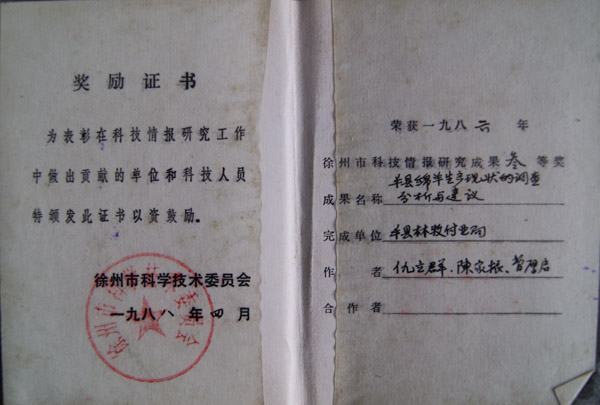 奖励证书
为表彰在科技情报研究工作
中做出贡献的单位和科技人员
特颁发此证书以资鼓励。
徐州市科学技术委员会
一九八八年四月
荣获一九八六年
徐州市科技情报研究成果叁等奖
成果名称 丰县绵羊生产现状的调查
分析与建议
完成单位 丰县林牧付业局
作者 仇立群、陈家振、曹启
合作者